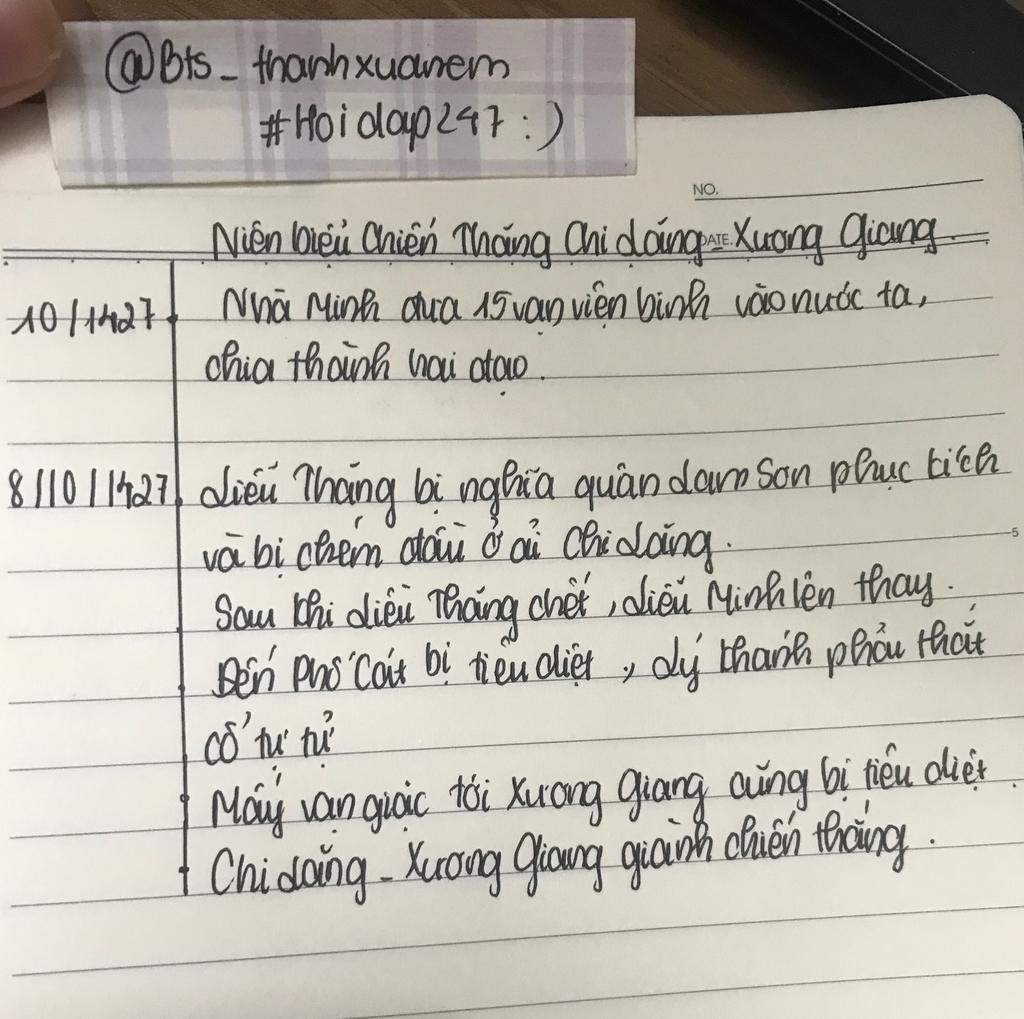 @Bts_thanhxuanem
#Hoidap247:)
NO.
Niên biểu Chiến Thắng Chi Lăng - Xương Giang.
DATE.
10/1427 Nhà Minh đưa 15 vạn viện binh vào nước ta,
chia thành hai đạo.
8/10/1427 Liễu Thăng bị nghĩa quân Lam Sơn phục kích
và bị chém đầu ở ải Chi Lăng.
5
Sau khi Liễu Thăng chết, Liễu Minh lên thay.
Đến Phố Cát bị tiêu diệt, Lý Khánh phải thắt
cổ tự tử
Mấy vạn giặc tới Xương Giang cũng bị tiêu diệt.
Chi Lăng - Xương Giang giành chiến thắng.